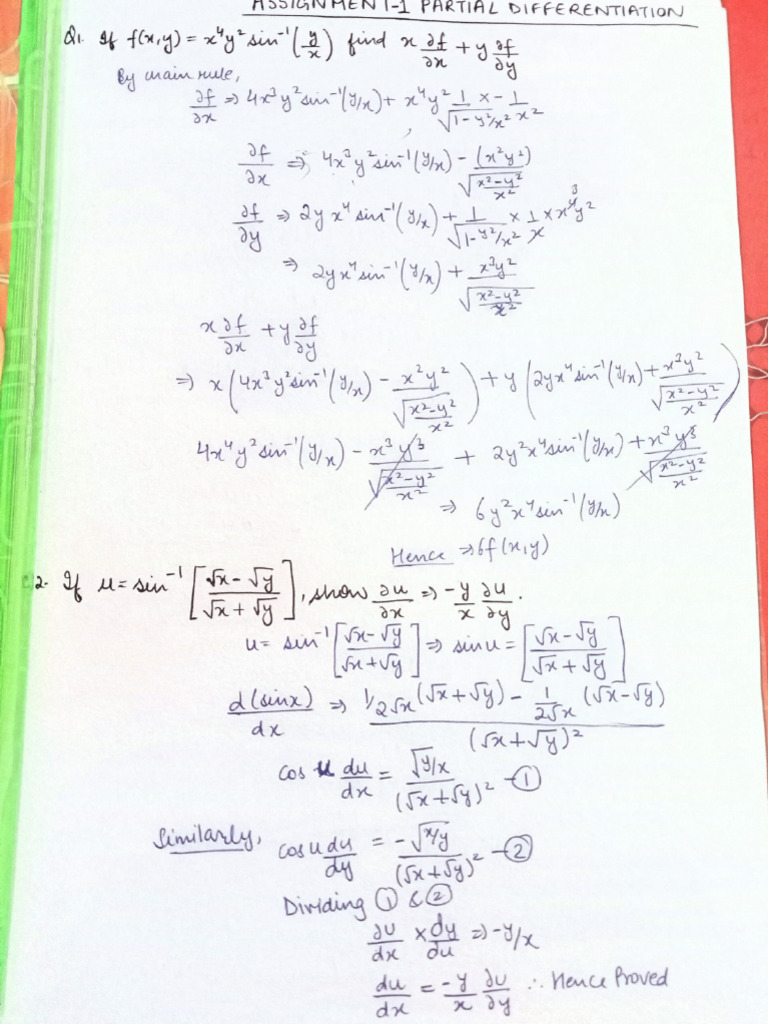 ASSIGNMENT-1 PARTIAL DIFFERENTIATION
Q1. If f(x,y) = x⁴y² sin⁻¹(y/x) find x ∂f/∂x + y ∂f/∂y
By main rule,
∂f/∂x ⇒ 4x³y² sin⁻¹(y/x) + x⁴y² 1/√(1-y²/x²) × -1/x²
∂f/∂x ⇒ 4x³y² sin⁻¹(y/x) - (x²y²)/√((x²-y²)/x²)
∂f/∂y ⇒ 2yx⁴ sin⁻¹(y/x) + 1/√(1-y²/x²) × 1/x × x⁴ ³y²
⇒ 2yx⁴ sin⁻¹(y/x) + x³y²/√((x²-y²)/x²)
x ∂f/∂x + y ∂f/∂y
⇒ x(4x³y² sin⁻¹(y/x) - x²y²/√((x²-y²)/x²)) + y(2yx⁴ sin⁻¹(y/x) + x³y²/√((x²-y²)/x²))
4x⁴y² sin⁻¹(y/x) - x³y³/√((x²-y²)/x²) + 2y²x⁴ sin⁻¹(y/x) + x³y³/√((x²-y²)/x²)
⇒ 6y²x⁴ sin⁻¹(y/x)
Hence ⇒ 6f(x,y)
2. If u = sin⁻¹[(√x - √y)/(√x + √y)], show ∂u/∂x ⇒ -y/x ∂u/∂y.
u = sin⁻¹[(√x-√y)/(√x+√y)] ⇒ sin u = [(√x-√y)/(√x+√y)]
d(sinx)/dx ⇒ (1/2√x (√x+√y) - 1/2√x (√x-√y))/(√x+√y)²
cos u du/dx = √(y/x)/(√x+√y)² - ①
Similarly, cos u du/dy = -√(x/y)/(√x+√y)² - ②
Dividing ① & ②
∂u/dx × dy/du ⇒ -y/x
du/dx = -y/x ∂u/∂y ∴ Hence Proved